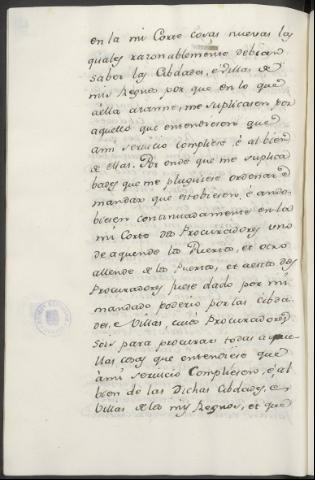 en la mi Corte cosas nuevas las
quales razonablemente debian
saber las Cibdades, é Villas de
mis Regnos por que en lo que
á ella atanne, me suplicasen por
aquello que entendiesen que
ami servicio Compliese, é al bien
de ellas. Por ende que me suplica
bades que me pluguiese ordenar é
mandar que estobiesen, é ando
biesen continuadamente en la
mi Corte dos Procuradores uno
de aquende los Puertos, et otro
allende de los Puertos, et aestos dos
Procuradores fuese dado por mi
mandado poderio por las Cibda
des, é Villas, cuios Procuradores
sois para procurar todas aque
llas cosas que entendiese que
ámi servicio Compliesen, é al
bien de las Dichas Cibdades, é
Villas de los mis Regnos, et que